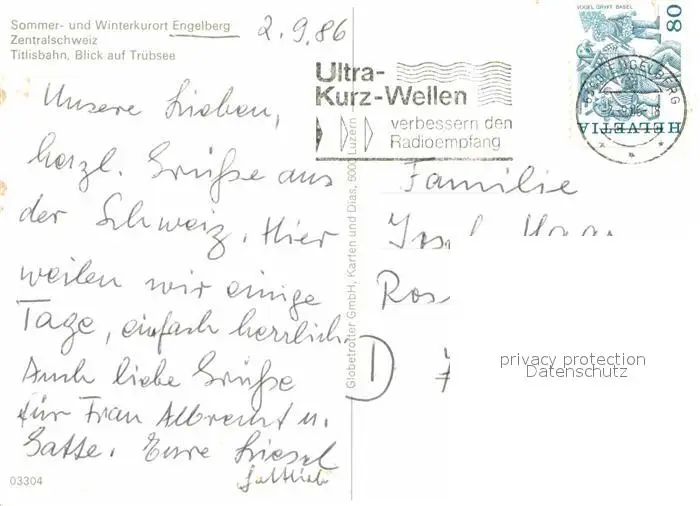 Sommer- und Winterkurort Engelberg
Zentralschweiz
Titlisbahn, Blick auf Trübsee
2.9.86
Unsere Lieben,
herzl. Grüße aus
der Schweiz. Hier
weilen wir einige
Tage, einfach herrlich.
Auch liebe Grüße
für Frau Albrecht u.
Gatte. Eure Liesel
Gottlieb
03304
Globetrotter GmbH, Karten und Dias, 6000 Luzern
Ultra-
Kurz-Wellen
verbessern den
Radioempfang
VOGEL GRYFF BASEL
80
HELVETIA
ENGELBERG
Familie
Josef
Ros
D
7
privacy protection
Datenschutz